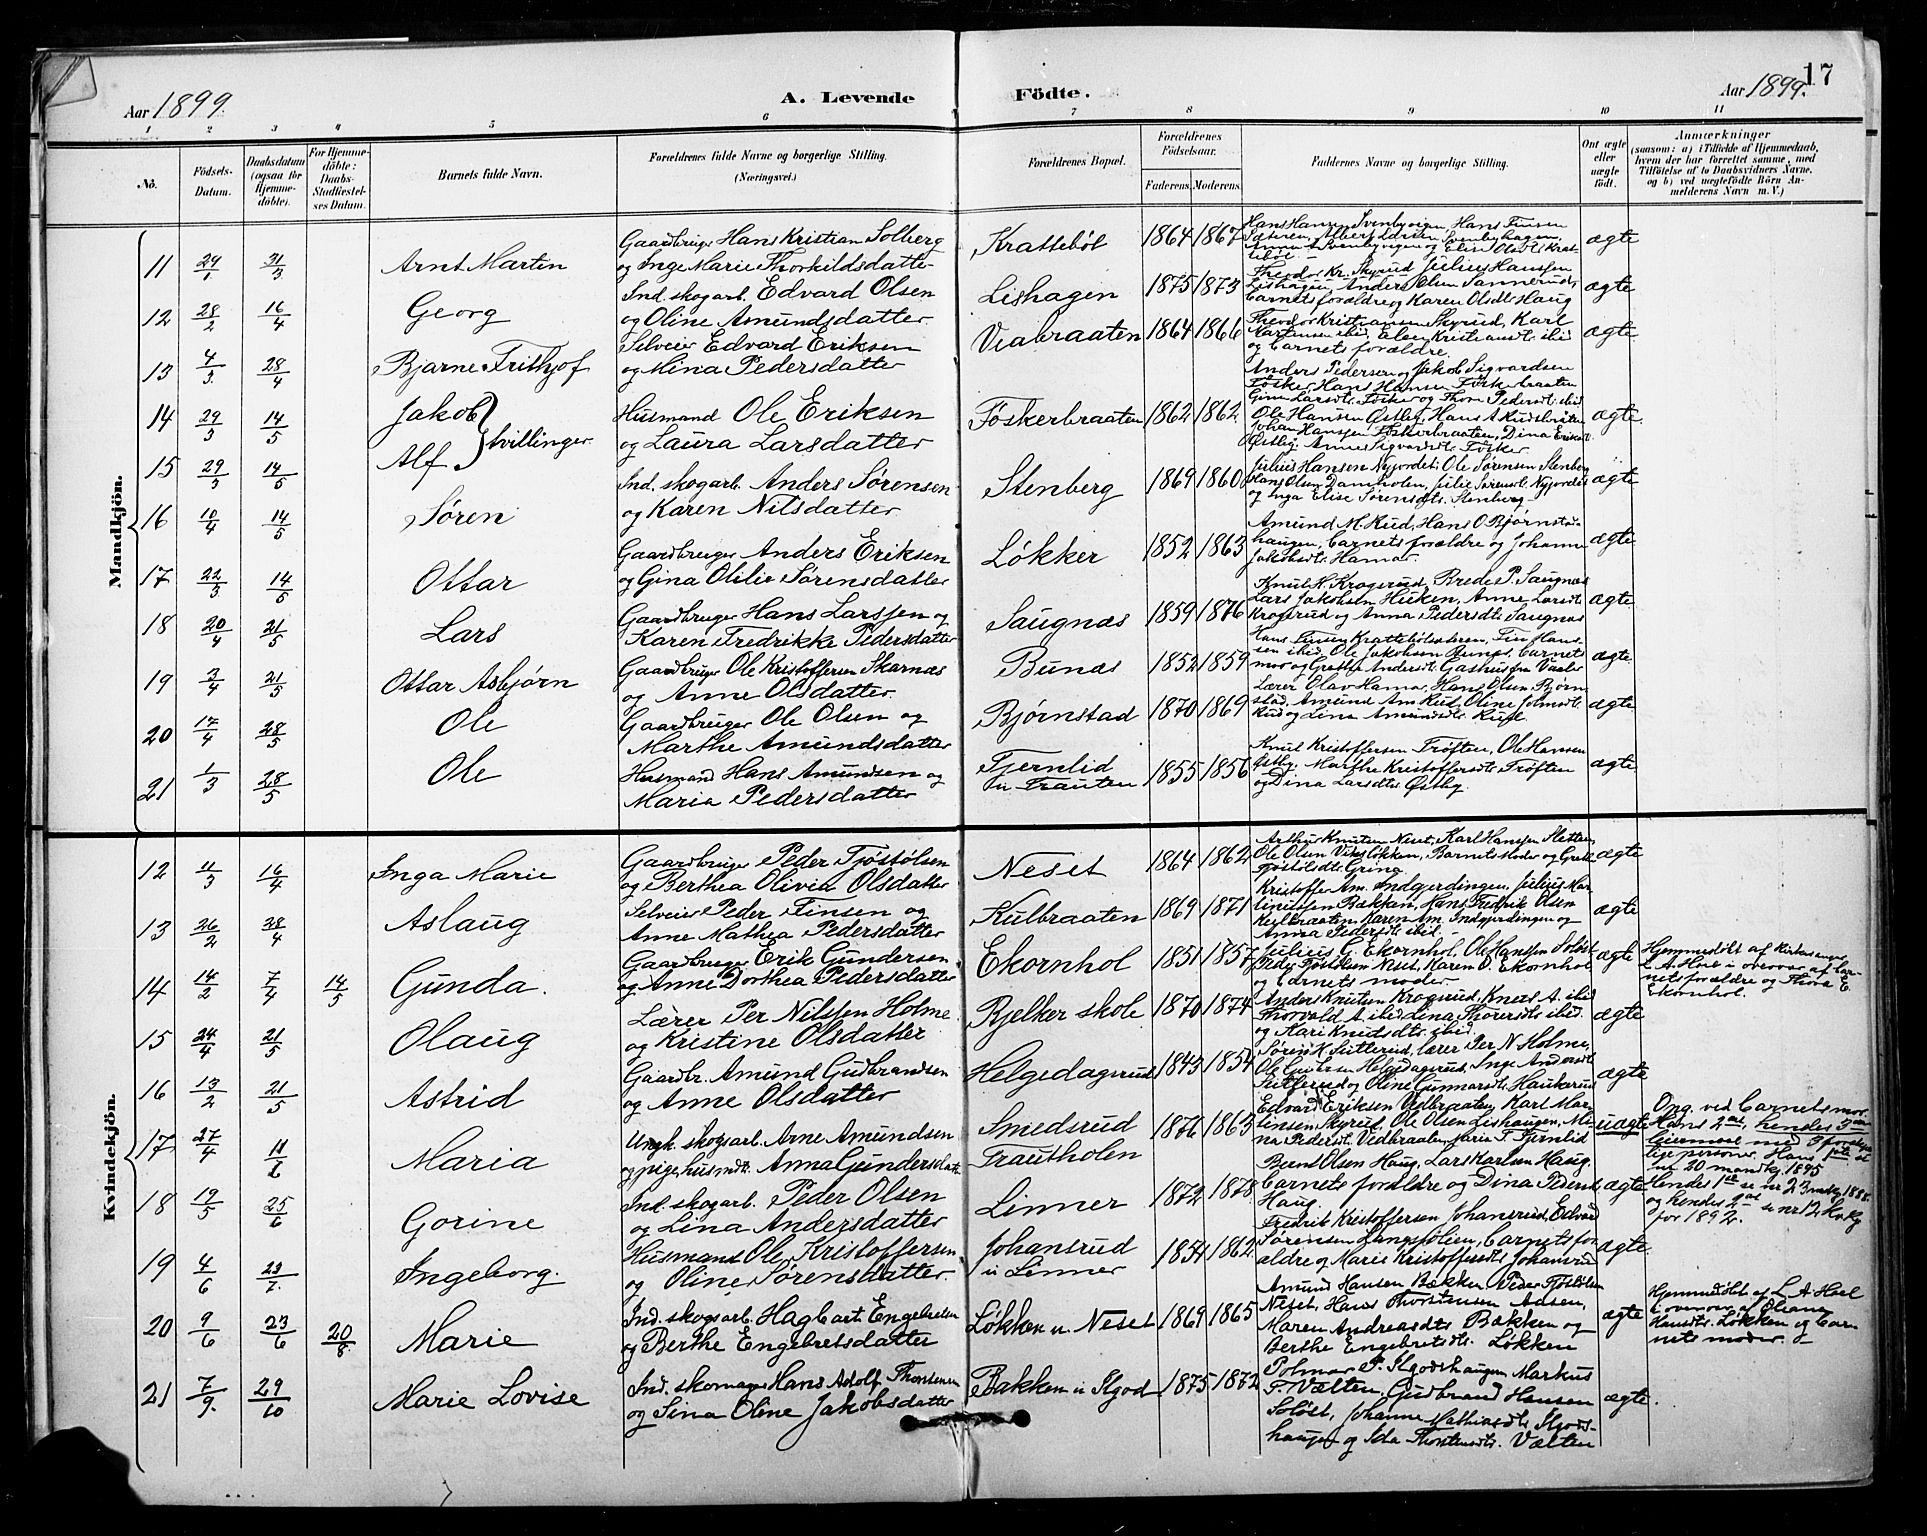 17
Aar 1899.
A. Levende Födte.
Aar 1899.
1 2 3 4 5 6 7 8 9 10 11
No.
Födsels-Datum.
Daabsdatum (ogsaa for Hjemmedöbte).
For Hjemmedöbte: Daabs-Stadfæstelses Datum.
Barnets fulde Navn.
Forældrenes fulde Navne og borgerlige Stilling.
(Næringsvei.)
Forældrenes Bopæl.
Forældrenes Födselsaar.
Faderens. Moderens.
Faddernes Navne og borgerlige Stilling.
Om ægte eller uægte født.
Anmærkninger
(saasom: a) i Tilfælde af Hjemmedaab,
hvem der har forrettet samme, med
Tilföielse af to Daabsvidners Navne,
og b) ved uægtefödte Börn An-
melderens Navn m. V.)
Mandkjön.
11 29/1 31/3 Arnt Martin
Gaardbruger Hans Kristian Solberg
og Inge Marie Thorkildsdatter
Krattebøl 1864 1867 ægte
12 28/2 16/4 Georg
Ind. skogarb. Edvard Olsen
og Oline Amundsdatter
Lishagen 1875 1873
Theodor Kr. Skyrud Julius Hanssen
Lishagen, Anders Olsen Sannerud,
barnets forældre og Karen Olsdt Haug
ægte
13 4/3 28/4 Bjarne Frithjof
Selveier Edvard Eriksen
og Mina Pedersdatter
Viabraaten 1864 1866
Theodor Kristiansen Skyrud, Karl
Martinsen ibid, Elen Kristiansdt. ibid
og barnets forældre.
ægte
14 29/3 14/5 Jakob } tvillinger
Husmand Ole Eriksen
og Laura Larsdatter
Føskerbraaten 1862 1862
Anders Pedersen og Jakob Sigvardsen
Føsker Hans Hansen Føskerbraaten
Gina Larsdt. Føsker og Thora Pedersdt. ibid
ægte
15 29/3 14/5 Alf
Ole Hansen Østby, Hans A Rudsbraten
Johan Hanssen Føskerbraaten, Dina Eriksdt.
Østby, Anne Sigvardsdt. Føsker
16 10/4 14/5 Søren
Ind. skogarb. Anders Sørensen
og Karen Nilsdatter
Stenberg 1869 1860
Julius Hansen Nyjordet, Ole Sørensen Stenberg
Hans Olsen Damholen, Julie Sørensdt. Nyjordet
og Inga Elise Sørensdt. Stenberg
ægte
17 22/3 14/5 Ottar
Gaardbruger Anders Eriksen
og Gina Otilie Sørensdatter
Løkker 1852 1863
Amund M. Rud, Hans O Bjørnstad-
haugen, barnets forældre og Johanne
Jakobsdt. Hamar
ægte
18 20/4 21/5 Lars
Gaardbruger Hans Larssen og
Karen Fredrikke Pedersdatter
Saugnæs 1859 1876
Knut K. Krogsrud, Brede P. Saugnæs
Lars Jakobsen Huken, Anne Larsdt.
Krogsrud og Anna Pedersdt. Saugnæs
ægte
19 3/4 21/5 Ottar Asbjørn
Gaardbruger Ole Kristoffersen Skarnæs
og Anne Olsdatter
Bunæs 1852 1859
Hans Finsen Krattebølsæteren, Fin Hans-
sen ibid, Ole Jakobsen Bunæs, barnets
mor og Grethe Andersdt. Gashus fra Vaaler
ægte
20 17/4 28/5 Ole
Gaardbruger Ole Olsen og
Marthe Amundsdatter
Bjørnstad 1870 1869
Lærer Olav Hamar, Hans Olsen Bjørn-
stad, Amund Am. Rud, Oline Johnsdt.
Rud og Lina Amundsdt. Rud.
ægte
21 1/3 28/5 Ole
Husmand Hans Amundsen og
Maria Pedersdatter
Tjernlid u Trauten 1855 1856
Knut Kristoffersen Trøften, Ole Hansen
Østby, Marthe Kristoffersdt. Trøften
og Dina Larsdt. Østby.
ægte
Kvindekjön.
12 11/3 16/4 Inga Marie
Gaardbruger Peder Tjøstølsen
og Berthea Olivia Olsdatter
Neset 1864 1862
Arthur Knutsen Neset, Karl Hanssen Sletten,
Ole Olsen Viksløkken, Barnets Moder og Grethe
Tjøstølsdt. Grina
ægte
13 26/2 28/4 Aslaug
Selveier Peder Finsen og
Anne Mathea Pedersdatter
Kulbraaten 1869 1871
Kristoffer Am. Indgjerdingen, Julius Mar-
tinussen Bækken, Hans Fredrik Olsen
Kulbraaten, Karen Am. Indgjerdingen og
Anna Pedersdt. ibid.
ægte
14 14/2 7/4 14/5 Gunda.
Gaardbruger Erik Gundersen
og Anne Dorthea Pedersdatter
Ekornhol 1851 1857
Julius G. Ekornhol, Ole Hanssen Soløst
Peder Tjøstelsen Neset, Karen O. Ekornhol
og barnets moder.
ægte
Hjemmedøbt af Kirkesanger
L. A. Hoel i overvær af bar-
nets forældre og Thora E.
Ekornhol.
15 24/4 21/5 Olaug
Lærer Per Nilssen Holme
og Kristine Olsdatter
Bjelker skole 1870 1874
Anders Knutsen Krogsrud, Knut A. ibid
Thorvald A. ibid, Lina Thoresdt. ibid.
og Kari Knudsdt. ibid.
ægte
16 13/2 21/5 Astrid
Gaardbr. Amund Gudbrandsen
og Anne Olsdatter
Helgedagsrud 1843 1854
Søren K. Sætterud, lærer Per N. Holme,
Ole Gulbrsn Helgedagsrud, Inge Andersdt.
Sætterud og Oline Gunnarsdt. Haukerud
ægte
17 27/4 11/6 Maria
Ungk. skogsarb. Arne Amundsen
og pige, husmdt. Anna Gundersdatter
Smedsrud
Trautholen 1876 1863
Edvard Eriksen Vedbraaten, Karl Mar-
tinsen Skyrud, Ole Olsen Lishaugen, Mi-
na Pedersdt. Vedbraaten, Maria T. Tjernlid
uægte
Opg. ved barnets mor.
Hans 2det, hendes 3die
leiermaal med 3 forskjel-
lige personer. Hans 1ste se
nr 20 mandkj. 1895
Hendes 1ste se nr 23 mdkj 1888
og hendes 2det se nr 12 kvkj
for 1892.
18 19/5 25/6 Gorine
Ind. skogarb. Peder Olsen
og Lina Andersdatter
Linner 1872 1878
Bernt Olsen Haug, Lars Karlsen Haug.
barnets forældre og Dina Pedersdt
Haug.
ægte
19 4/6 23/7. Ingeborg.
Husmand Ole Kristoffersen
og Oline Sørensdatter.
Johansrud u Linner 1854 1862
Fredrik Kristoffersen Johansrud, Edvard
Sørensen Langsjølien, barnets for-
ældre og Marie Kristoffersdt. Johansrud
ægte
20 9/6 23/6 20/8 Marie
Ind. skogsarb. Hagbart Engebretsen
og Berthe Engebretsdatter
Løkken u. Neset 1869 1865
Amund Hansen Bækken, Peder Tjøstelsen
Neset, Hans Thorstensen Aasen,
Maren Andreasdt. Bækken og
Berthe Engebretsdt. Løkken
ægte
Hjemmedøbt af L A Hoel
i overvær af Oliane
Hansdt. Løkken og bar-
nets moder.
21 7/9. 29/10 Marie Lovise
Ind. skomager Hans Adolf Thorstensen
og Lina Oline Jakobsdatter
Bakken u Skjod 1875 1872
Polmar P. Skjodshaugen Markus
T. Vælten, Gudbrand Hansen
Soløst, Johanne Mathiasdt. Skjods-
haugen og Ida Thorstensdt. Vælten
ægte.